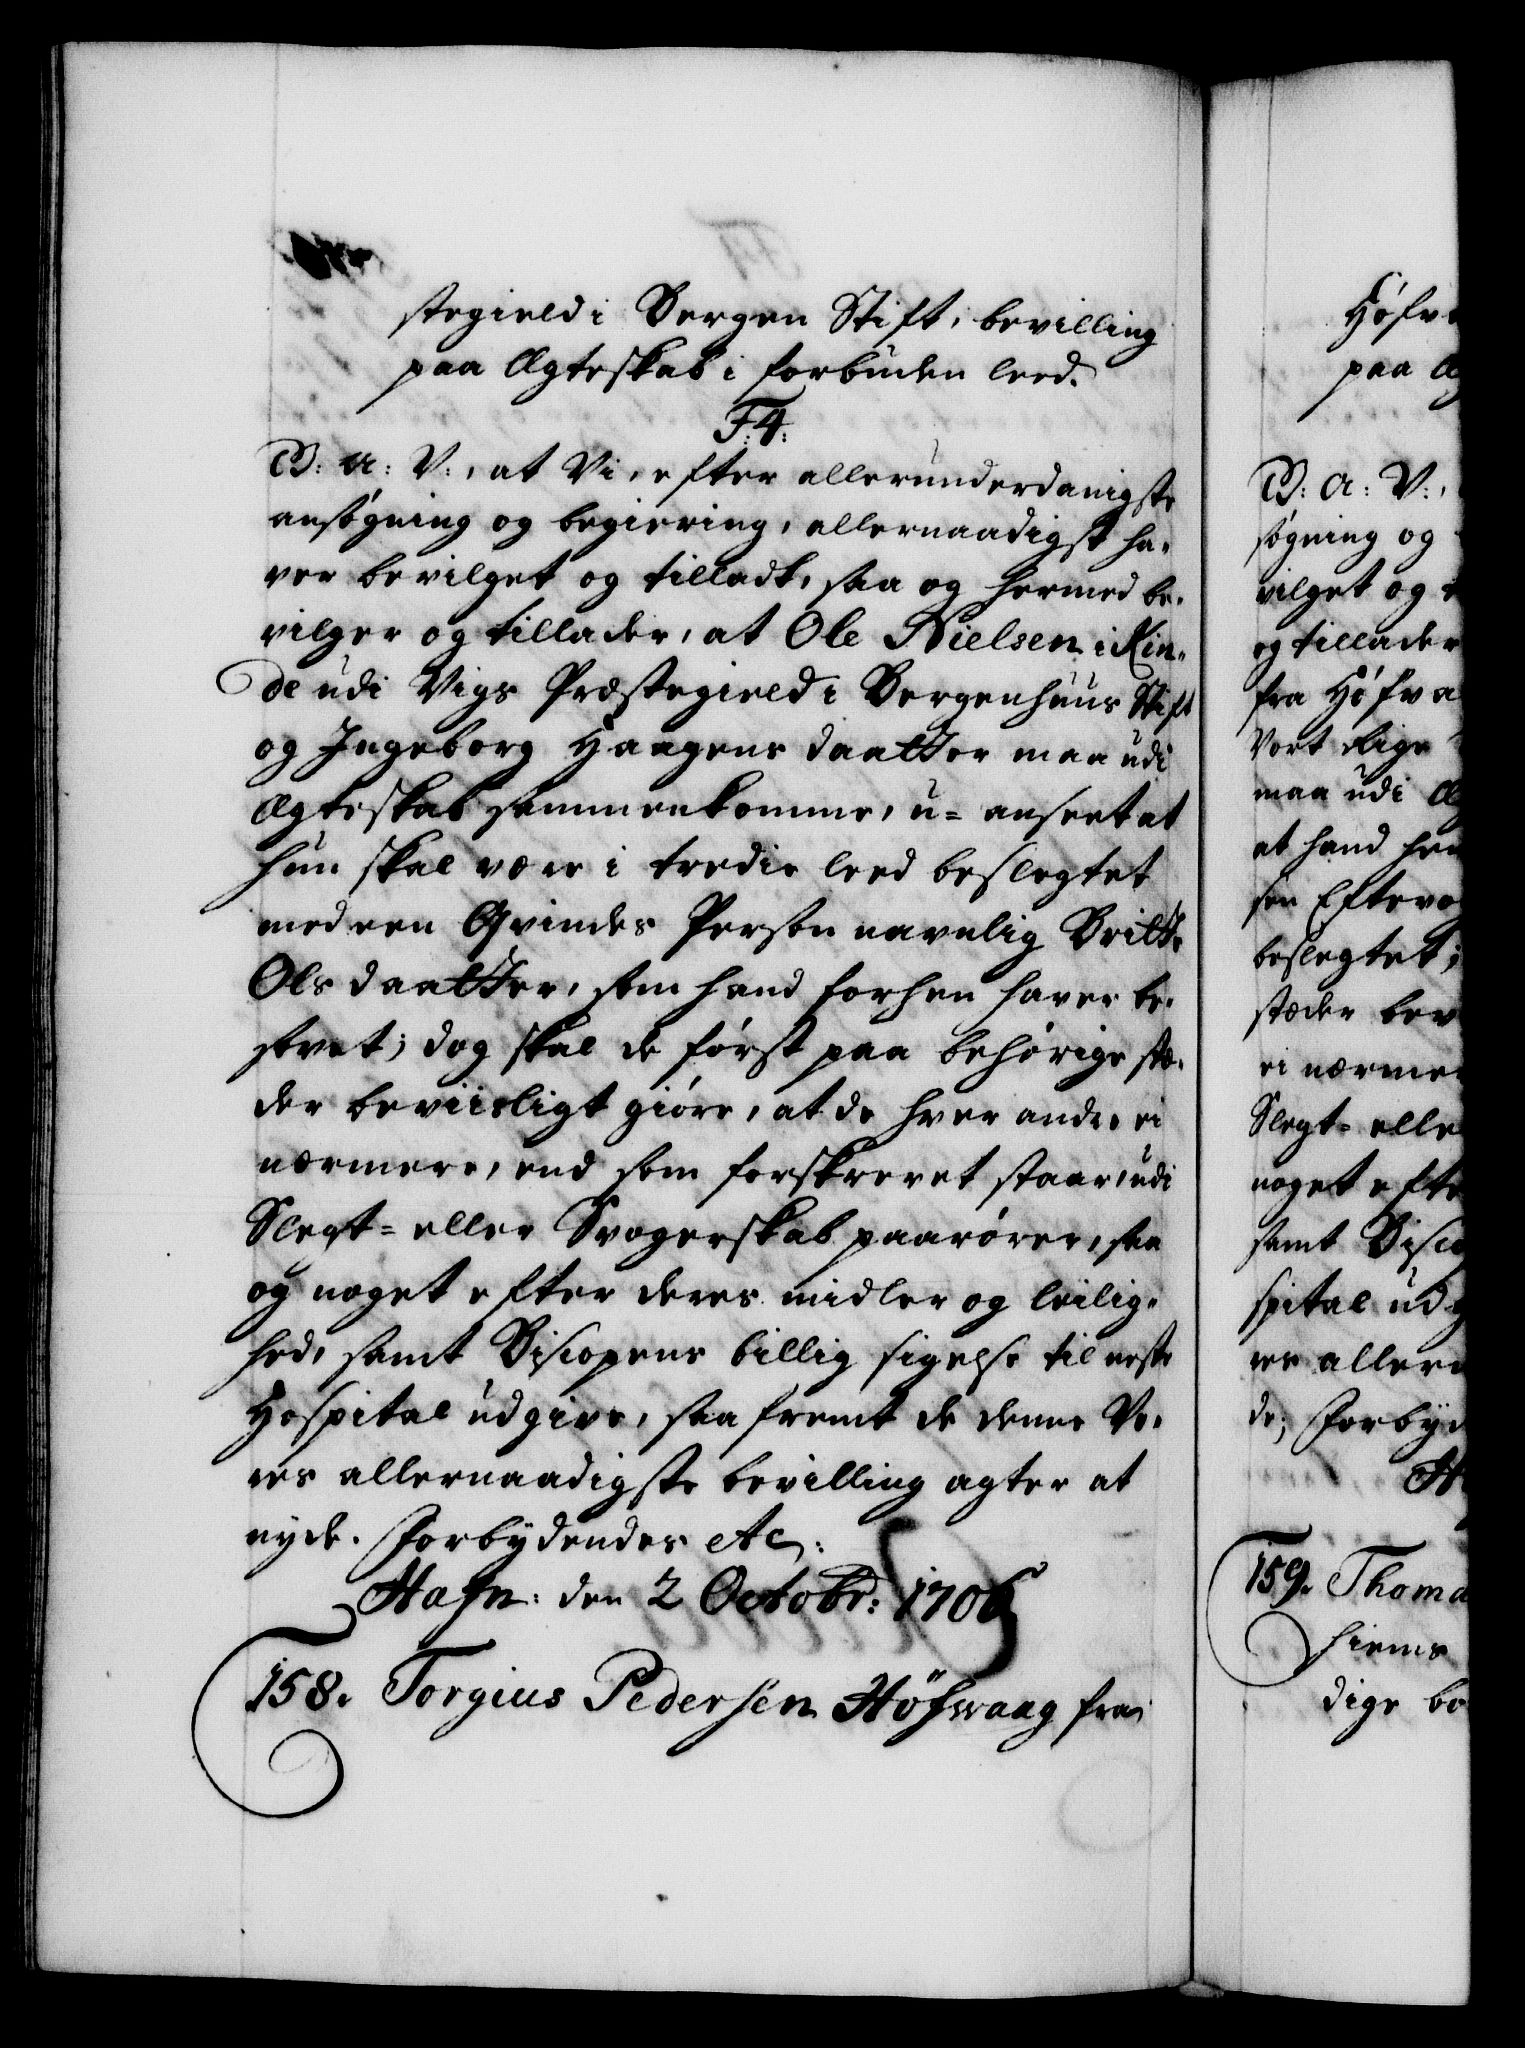 stegield i Bergen Stift, bevilling
paa Ægteskab i forbuden leed.
F:4:
G: A: V:, at Vi, efter allerunderdanigste
ansøgning og begiering, allernaadigst ha,
ver bevilget og tilladt, saa og hermed be,
vilger og tillader, at Ole Nielsen i Rin,
de udi Vigs Præstegield i Bergenhuus Stift
og Ingeborg Haagens daatter maa udi
Ægteskab sammenkomme, u= anseet at
hun skal være i tredie leed beslegtet
med een Qvindes Person navnlig Britte
Ols daatter, som hand forhen haver be,
sovet; dog skal de først paa behørige stæ,
der beviisligt giøre, at de hver andre ei
nærmere, end som forskrevet staar, udi
Slegt= eller Svogerskab paarører, saa
og noget efter deres midler og leilig,
hed, samt Biscopens billig sigelse til neste
Hospital udgive, saa fremt de denne Vo,
res allernaadigste bevilling agter at
nyde. Forbydendes etc:
Hafn: den 2 Octobr: 1706
158. Torgius Pedersen Höfwaag fra
Höfv
paa Æg
G: A: V:,
søgning og
vilget og t
og tillader
fra Höfva
Vort Rige
maa udi Æg
at hand hen
sen Eftero
beslegtet;
stæder bev
ei nærmer
Slegt= elle
noget efte
samt Bisco
spital udg
res allern
de; Forbyd
H
159. Thoma
hiems
dige bo